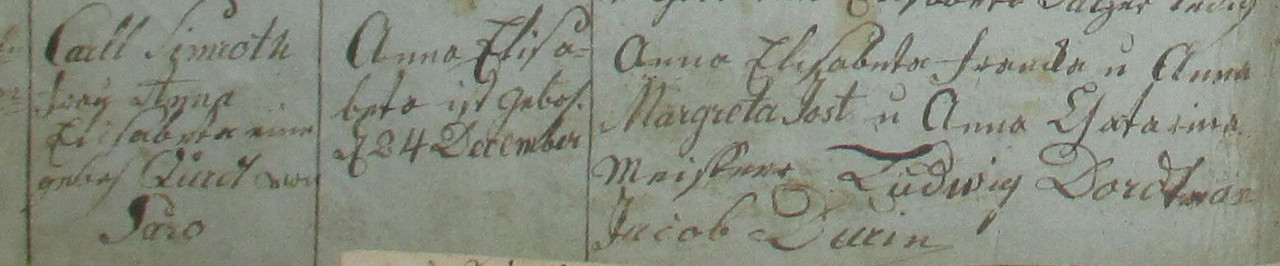 Carll Simroth
frau Anna
Elisabeta eine
gebor von
Saro
Anna Elisa-
beta ist gebor.
d 24 December
Anna Elisabeta Francka u Anna
Margreta Jost u Anna Catarina
Meisser Ludwig Dorotman
Jacob Durin